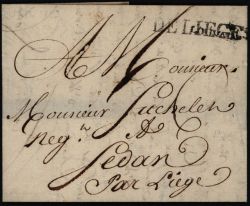 DE LIEGE
A Monsieur
Monsieur Suchelet
Neg.t A
Sedan
Par Liège